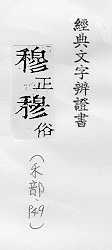 經典文字辨證書
穆正穆俗
(禾部，849)